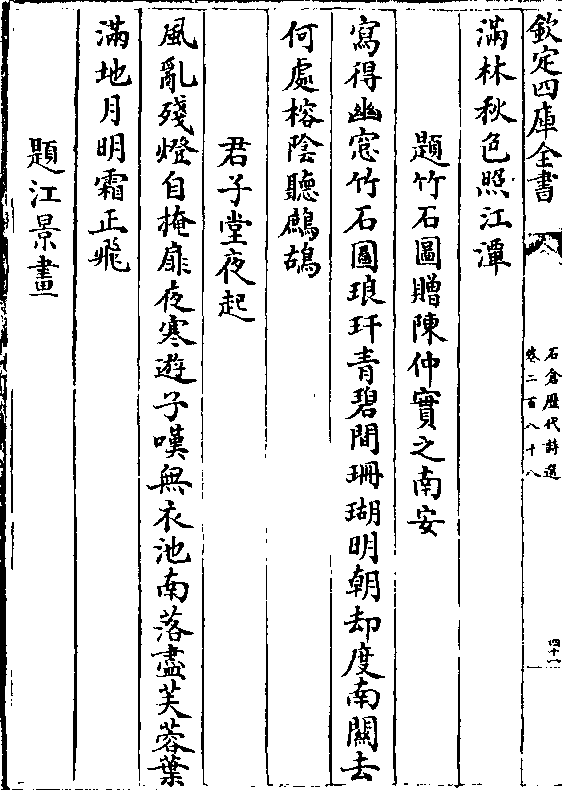 欽定四庫全書
石倉歷代詩選
卷二百八十八
四十一
滿林秋色照江潭
題竹石圖贈陳仲實之南安
寫得幽窓竹石圖琅玕青碧間珊瑚明朝却度南關去
何處榕陰聽鷓鴣
君子堂夜起
風亂殘燈自掩扉夜寒遊子嘆無衣池南落盡芙蓉葉
滿地月明霜正飛
題江景畫